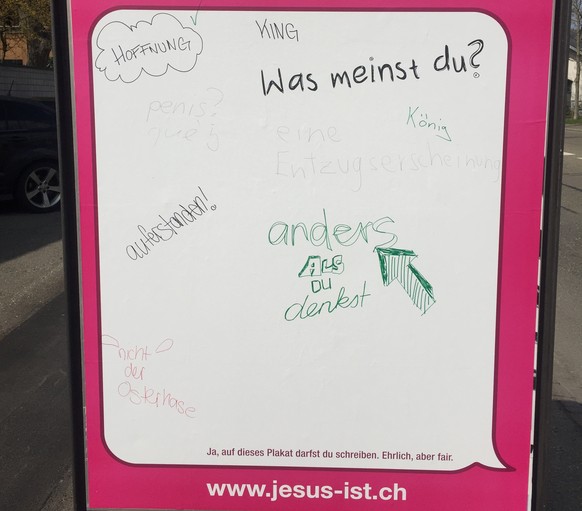 HOFFNUNG
KING
Was meinst du?
penis?
König
eine
Entzugserscheinung
auferstanden!
anders
ALS
DU
denkst
nicht
der
Osterhase
Ja, auf dieses Plakat darfst du schreiben. Ehrlich, aber fair.
www.jesus-ist.ch